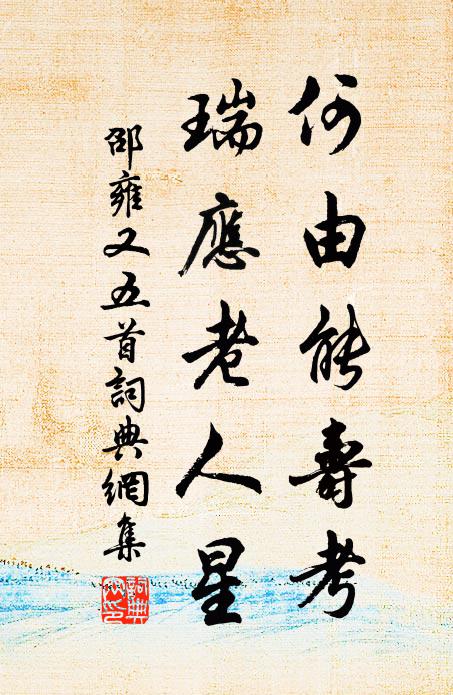 何由能壽考
瑞應老人星
邵雍又五首詞典網集